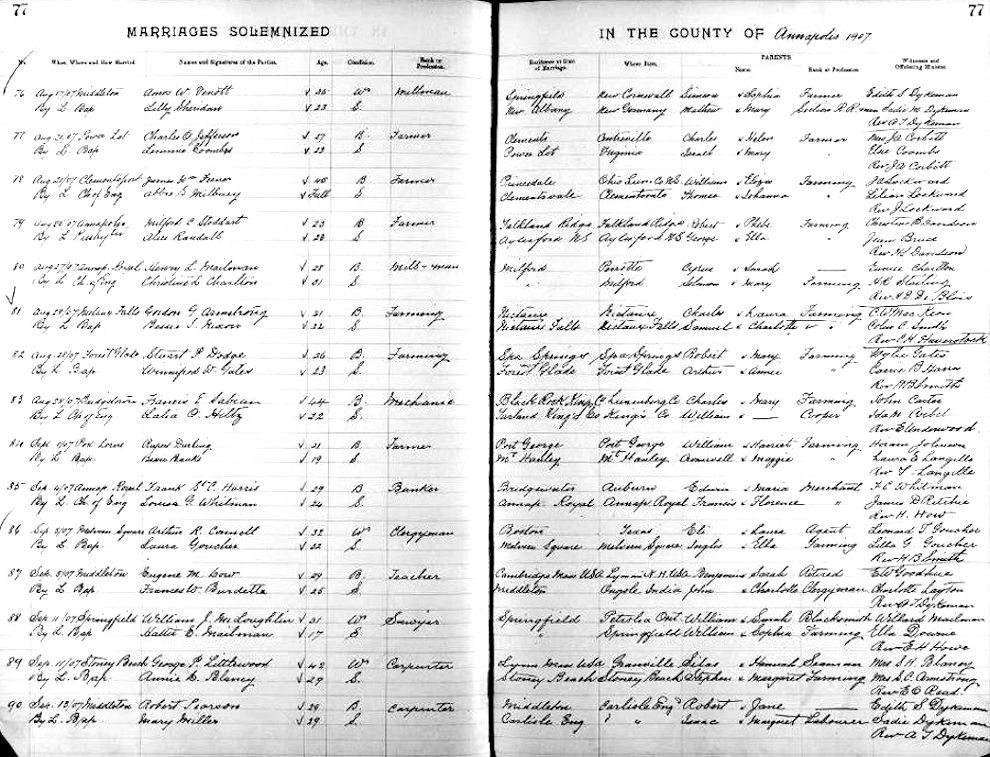 77 77
MARRIAGES SOLEMNIZED IN THE COUNTY OF Annapolis 1907
No. When, Where and How Married Names and Signatures of the Parties. Age. Condition. Rank or Profession. Residence at Time of Marriage. Where Born. PARENTS Name Rank or Profession. Witnesses and Officiating Minister.
76 Aug 17/07 Middleton Amos W. V 26 Wr Millman Springfield New Cornwall Simeon & Sophia Farmer Edith S Dykeman
By L Bap Lilly Sheridan V 23 S New Albany New Germany Mathew & Mary Section R.R. man Sadie M. Dykeman
Rev A T Dykeman
77 Aug 21/07 Power Lot Charles O Jefferson V 27 B. Farmer Clements Centreville Charles & Helen Farmer Mrs J A Corbitt
By L. Bap Lemmie Coombs V 23 S Power Lot Virginia & Mary " Elsie Coombs
Rev J A Corbitt
78 Clementsport James V 45 B Farmer Princedale William & Eliza Farming Lockward
By L Ch of Eng Abbie Milbury V Full S Clementsvale Clementsvale Thomas & Johanna " Lilian Lockward
Rev J Lockward
79 Annapolis Milford C Stoddart V 23 B Farmer Falkland Ridge Falkland Ridge Robert & Phebe Farming Davidson
By L Presbyter Alice Randall V 28 S Aylesford NS Aylesford N.S George & Ella " Jean
Rev H Davidson
80 Aug 27/07 Annap. Royal Henry L. Mailman V 28 B. Mill-man Milford Perotte Cyrus & Sarah — Eunice Charlton
By L. Ch. of Eng Christine L Charlton V 21 S " Milford Selmon & Mary Farming
Rev De Blois
81 Aug 28/07 Nictaux Falls Gordon G Armstrong V 21 B Farming Nictaux Nictaux Charles & Laura Farming
By L Bap Bessie L V 22 S Nictaux Falls Nictaux Falls Samuel & Charlotte " C. Smith
Rev C H Haverstock
82 Aug 28/07 Forest Glade Stuart P Dodge V 26 B. Farming Spa Springs Spa Springs Robert & Mary Farming Wylie Gates
By L. Bap. Winnifred W. Gates V 23 S. Forest Glade Forest Glade Arthur & Annie " Carrie B
Rev H B Smith
83 Aug 28/07 Bridgetown Francis E V 44 B. Mechanic Black Rock King Co Lunenburg Co Charles & Mary Farming John Carter
By L Ch of Eng Lalia O. Hiltz V 22 S. King's Co King's Co William & — Cooper Ida M
Rev E Underwood
84 Sept 1/07 Port Lorne Rupert Durling V 21 B Farmer Port George Port George William & Harriet Farming Hiram Johnson
By L Bap. Banks V 19 S. Mt Hanley Mt Hanley Cromwell & Maggie " Laura E Langille
Rev Langille
85 Sep 4/07 Annap Royal Frank Harris V 29 B Banker Bridgewater Auburn Edwin & Maria Merchant F. C. Whitman
By L. Ch. of Eng Louisa G. Whitman V 24 S Annap. Royal Annap. Royal Francis & Florence " James D Ritchie
Rev H. How
86 Sep. 5/07 Melvern Square Arthur R. Connell V 32 Wr Clergyman Boston Texas Eli & Laura Agent Leonard T Goucher
By L Bap. Laura Goucher V 22 S. Melvern Square Melvern Square Inglis & Ella Farming Lilla G Goucher
Rev H B Smith
87 Sep. 5/07 Middleton Eugene M. Dow V 29 B. Teacher Cambridge Mass USA Lyman N.H. USA & Sarah Retired E W Goodhue
By L Bap Frances W. Burdette V 25 S Middleton Ongole India John & Charlotte Clergyman Charlotte Layton
Rev A T Dykeman
88 Sep. 11/07 Springfield William J. McLoughlin V 31 Wr Sawyer Springfield Petrolia Ont William & Sarah Blacksmith Willard Mailman
By L. Bap. Hattie E. Mailman V 17 S " Springfield William & Sophia Farming Ella Downie
Rev E H Howe
89 Sep. 11/07 Stoney Beach George P. Littlewood V 42 Wr Carpenter Lynn Mass USA Granville Silas & Hannah Seaman Mrs S H. Blaney
By L. Bap. Annie E. Blaney V 29 S. Stoney Beach Stoney Beach Stephen & Margaret Farming Mrs A C. Armstrong
Rev E E Read
90 Sep. 13/07 Middleton Robert Pearson V 29 B Carpenter Middleton Carlisle Eng Robert & Jane — Edith S Dykeman
By L. Bap. Mary Miller V 29 S Carlisle Eng " " Isaac & Margaret Labourer Sadie Dykeman
Rev A T Dykeman